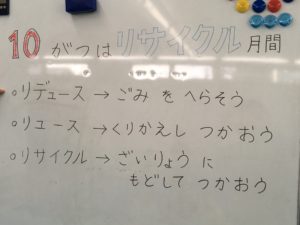 10がつはリサイクル月間
○リデュース→ごみをへらそう
○リユース→くりかえしつかおう
○リサイクル→ざいりょうに
もどしてつかおう